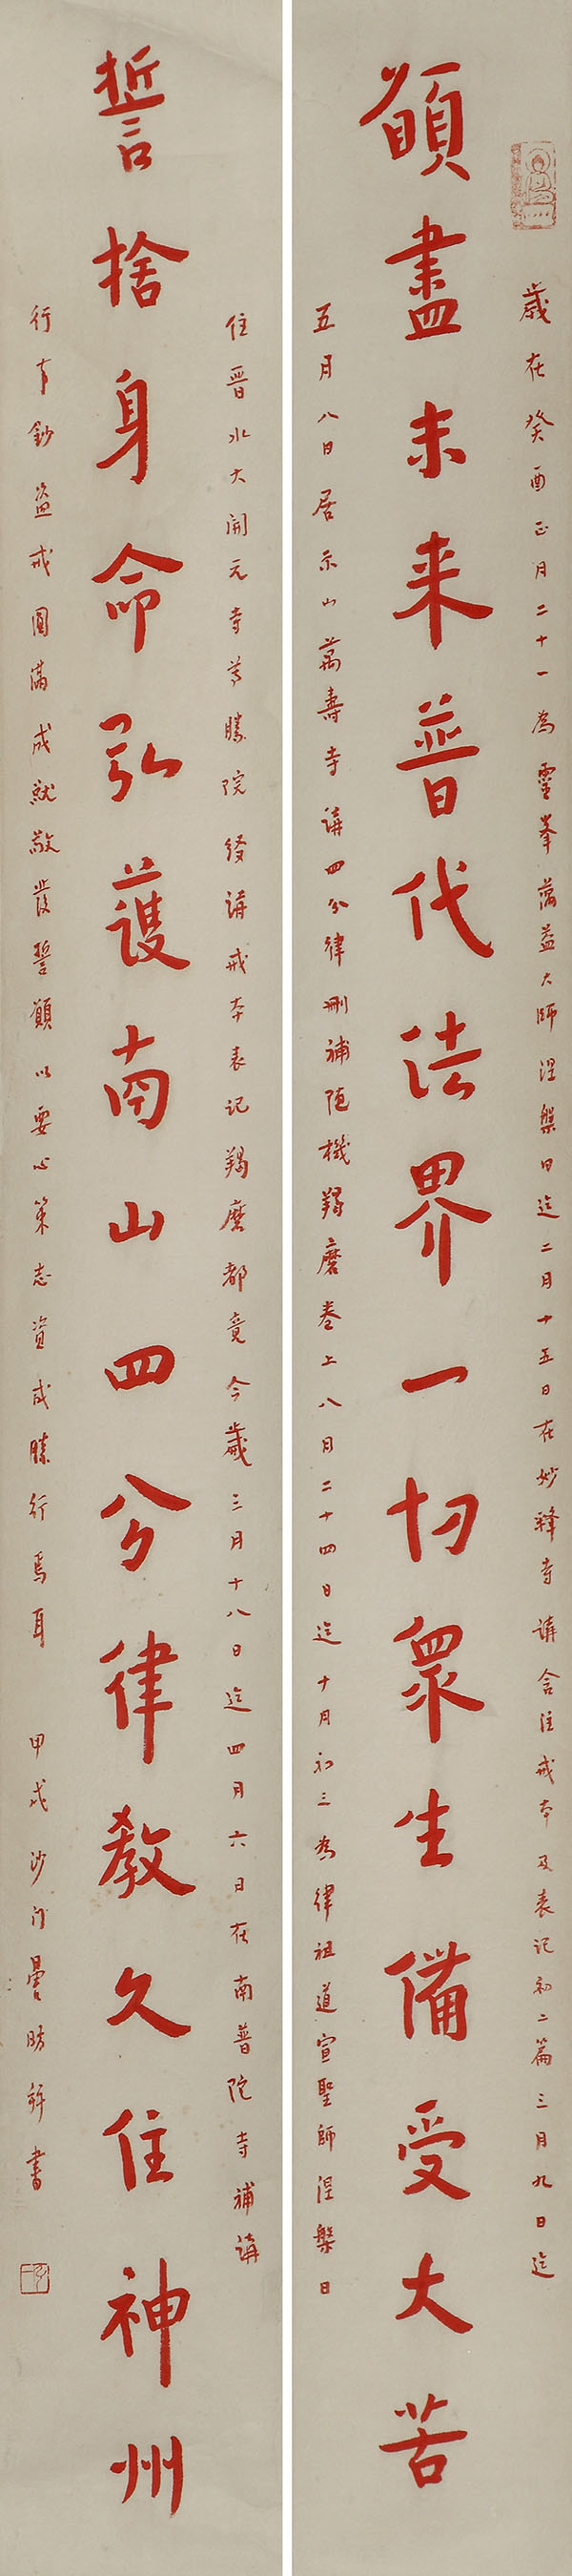 歲在癸酉正月二十一為靈峯蕅益大師涅槃日迄二月十五日在妙釋寺講含注戒本及表記初二篇三月九日迄
願盡未来普代法界一切眾生備受大苦
五月八日居禾山萬壽寺講四分律刪補隨機羯磨卷上八月二十四日迄十月初三為律祖道宣聖師涅槃日
住晉水大開元寺尊勝院經講戒本表記羯磨都竟今歲三月十八日迄四月六日在南普陀寺補講
誓捨身命弘護南山四分律教久住神州
行事鈔盜戒圓滿成就敬發誓願以要心策志資成勝行焉耳 甲戌沙門曇昉并書